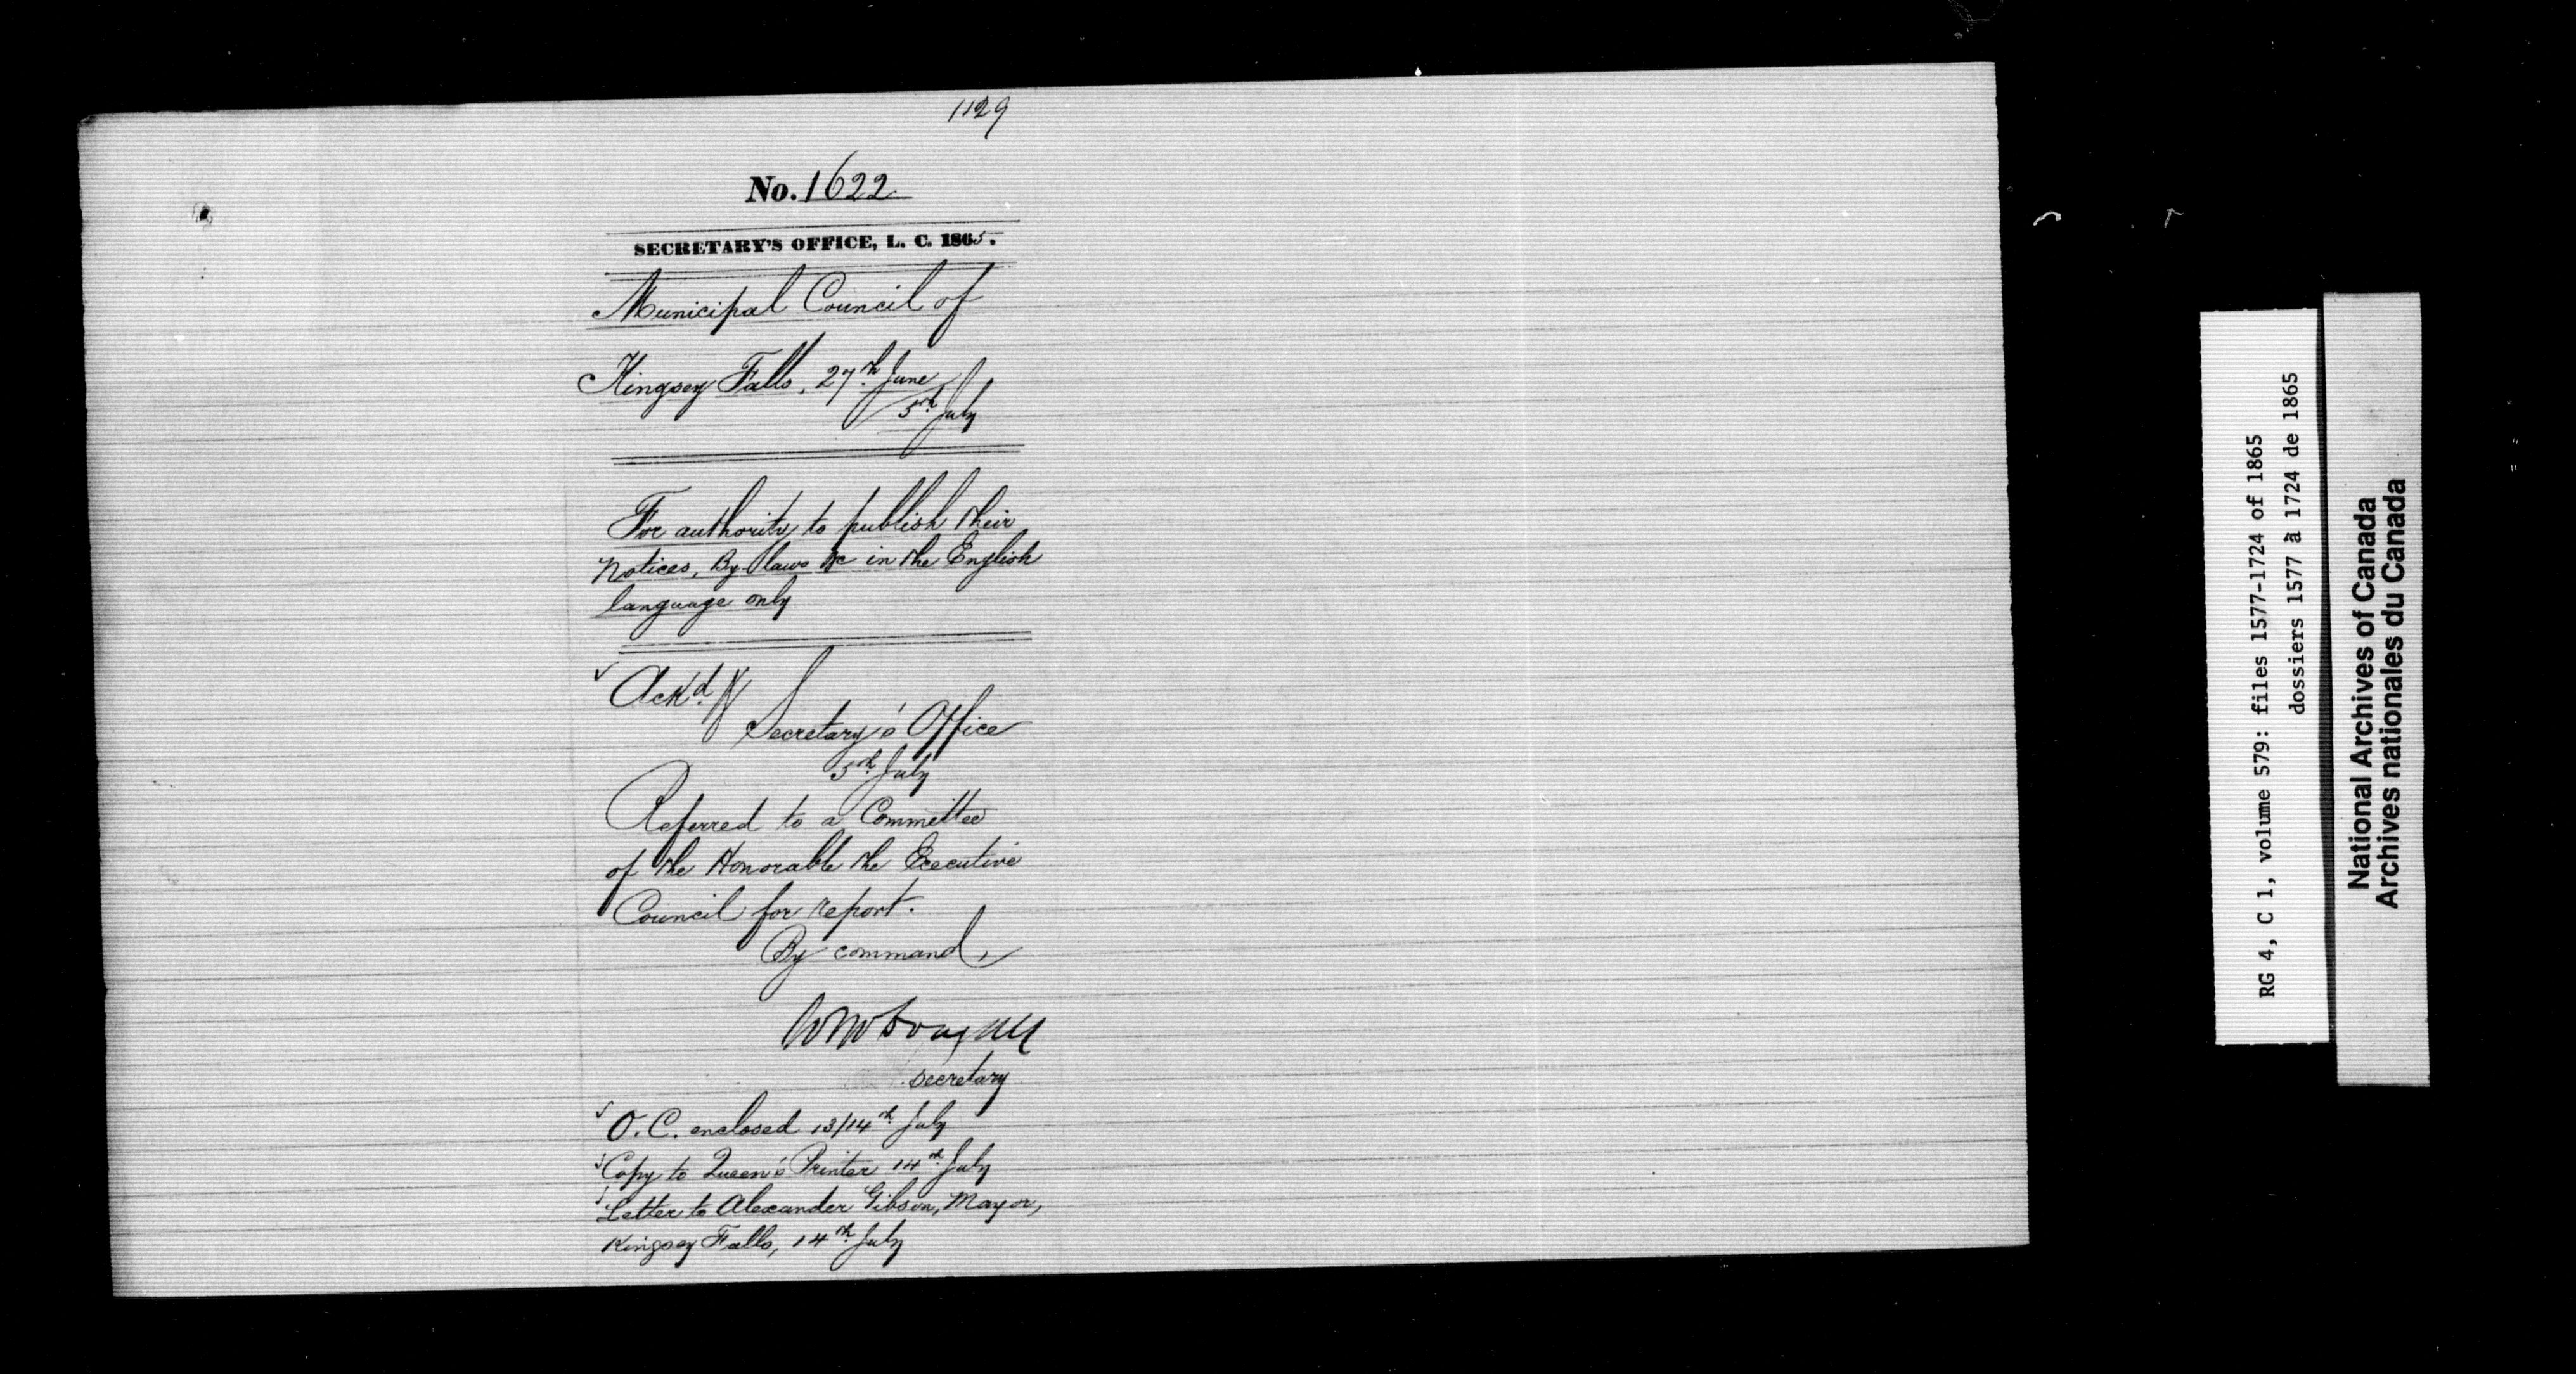 1129
No. 1622
SECRETARY'S OFFICE, L. C. 1865.
Municipal Council of
Kingsey Falls, 27th June
5th July
For authority to publish their
Notices, By-laws &c in the English
language only
Ackd.
Secretary's Office
5th July
Referred to a Committee
of the Honorable the Executive
Council for report.
By command,
secretary
O. C. enclosed 13/14th July
Copy to Queen's Printer 14th July
Letter to Alexander Gibson, Mayor,
Kingsey Falls, 14th July
RG 4, C 1, volume 579: files 1577-1724 of 1865
dossiers 1577 à 1724 de 1865
National Archives of Canada
Archives nationales du Canada